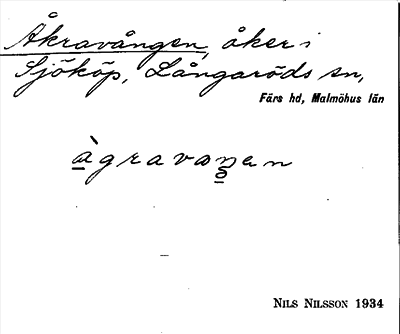 Åkravången, åker i
Sjököp, Långaröds sn,
Färs hd, Malmöhus län
àgravaŋen
NILS NILSSON 1934